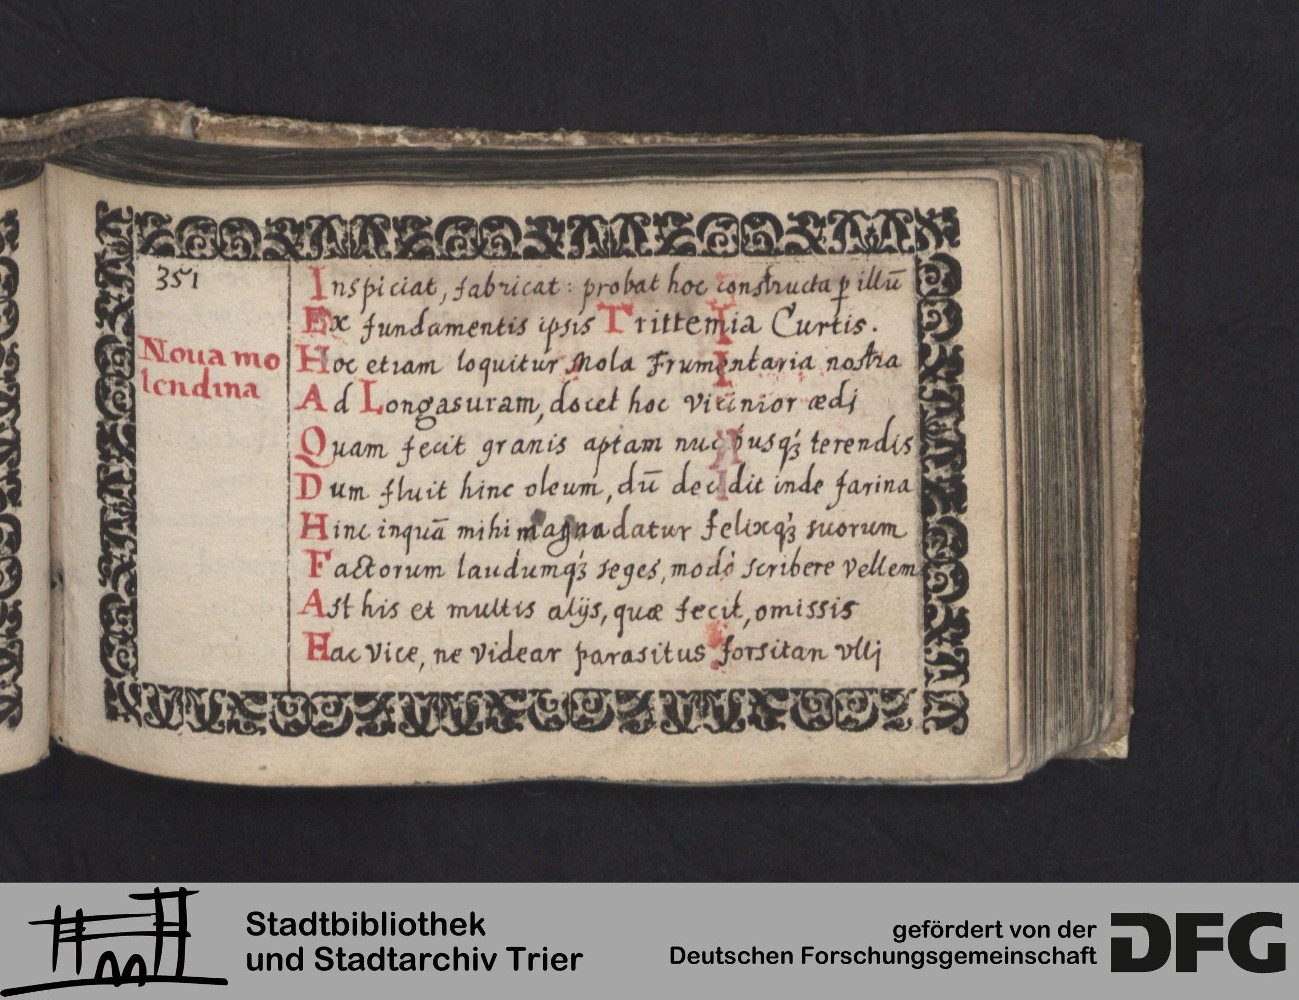 351
Noua mo
lendina
Inspiciat, fabricat: probat hoc constructa ꝑ illū
Ex fundamentis ipsis Trittemia Curtis.
Hoc etiam loquitur Mola Frumentaria nostra
Ad Longasuram, docet hoc vicinior ædj
Quam fecit granis aptam nucibusqꝫ terendis
Dum fluit hinc oleum, dū decidit inde farina
Hinc inquā mihi magna datur felixqꝫ suorum
Factorum laudumqꝫ seges, modò scribere vellem
Ast his et multis alijs, quæ fecit, omissis
Hac vice, ne videar parasitus forsitan vllj
Stadtbibliothek
und Stadtarchiv Trier
gefördert von der
Deutschen Forschungsgemeinschaft
DFG